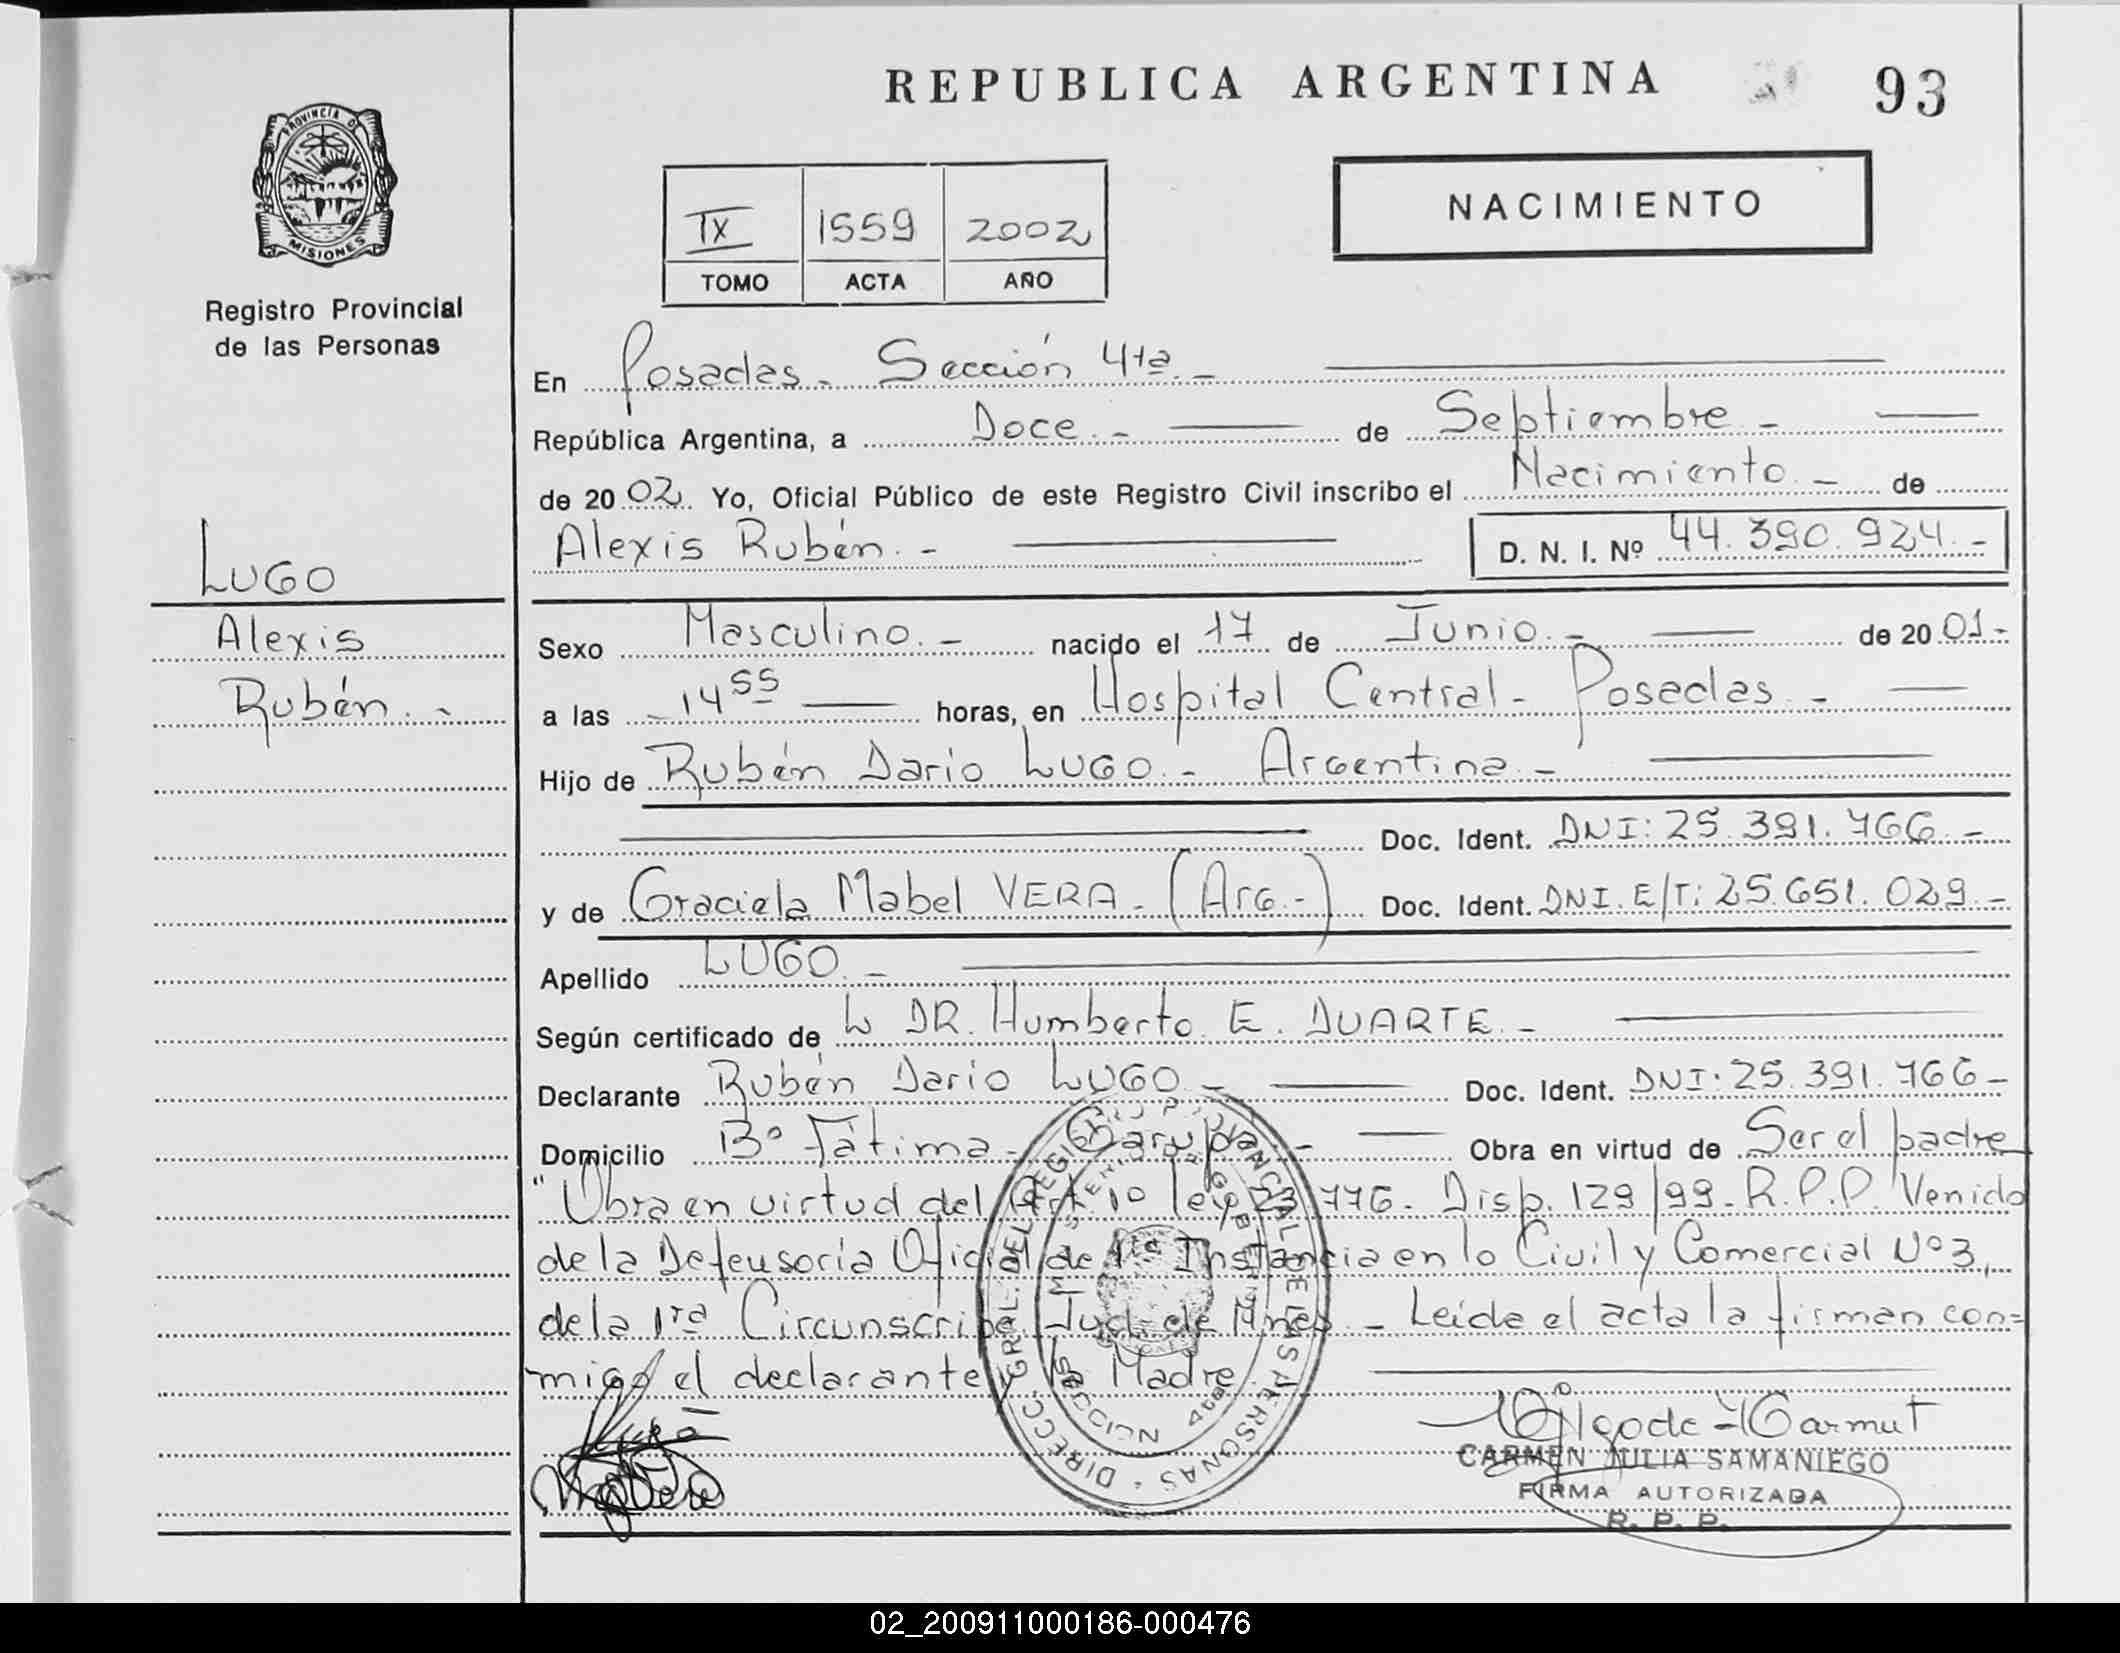 REPUBLICA ARGENTINA
93
PROVINCIA DE
MISIONES
Registro Provincial
de las Personas
NACIMIENTO
IX 1559 2002
TOMO ACTA AÑO
En Posadas - Sección 4ta. -
República Argentina, a Doce. - de Septiembre -
de 2002. Yo, Oficial Público de este Registro Civil inscribo el Nacimiento. - de
Alexis Rubén. - D. N. I. Nº 44.390.924. -
LUGO
Alexis
Rubén. -
Sexo Masculino. - nacido el 17 de Junio. - de 2001-
a las 14 55 horas, en Hospital Central - Posadas. -
Hijo de Rubén Dario LUGO. - Argentina. -
Doc. Ident. DNI: 25.391.766. -
y de Graciela Mabel VERA - (Arg. -) Doc. Ident. DNI. E/T: 25.651.029. -
Apellido LUGO. -
Según certificado de DR. Humberto E. DUARTE. -
Declarante Rubén Dario LUGO - Doc. Ident. DNI: 25.391.766 -
Domicilio Bº Fátima - Garupá - Obra en virtud de Ser el padre
"Obra en virtud del Art. 1º ley 23.776. Disp. 129/99 - R.P.P. Venido
de la Defensoría Oficial de 1ra Instancia en lo Civil y Comercial Nº 3,
de la 1ra Circunscripc. Jud. de Mnes. - Leída el acta la firman con=
migo el declarante y la Madre.
DIRECC. GRAL. DEL REGISTRO PROVINCIAL DE LAS PERSONAS
CARMEN JULIA SAMANIEGO
FIRMA AUTORIZADA
R. P. P.
02_200911000186-000476